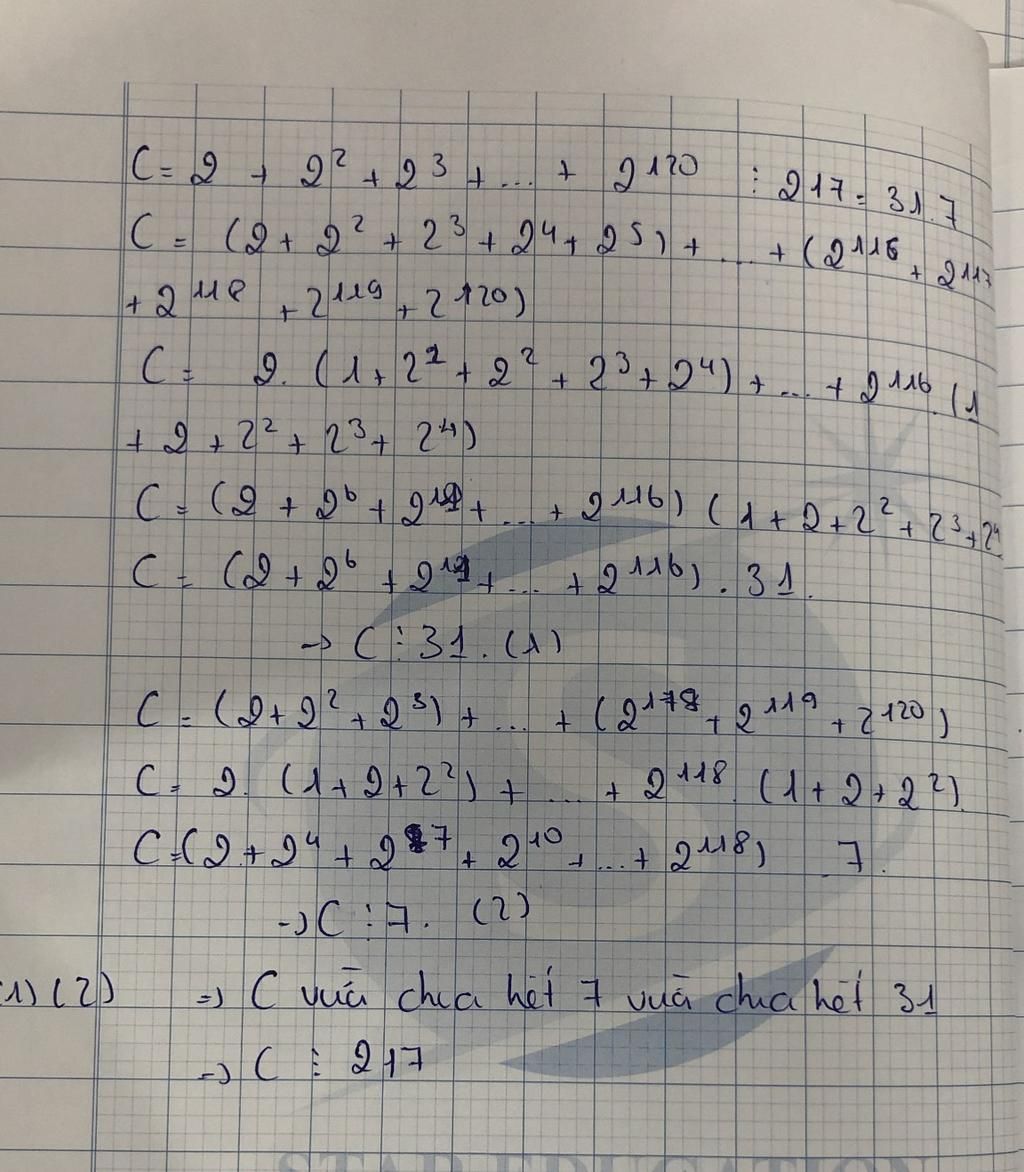 C = 2 + 2² + 2³ + ... + 2¹²⁰ ⋮ 217 = 31.7
C = (2 + 2² + 2³ + 2⁴ + 2⁵) + ... + (2¹¹⁶ + 2¹¹⁷
+ 2¹¹⁸ + 2¹¹⁹ + 2¹²⁰)
C = 2. (1 + 2¹ + 2² + 2³ + 2⁴) + ... + 2¹¹⁶. (1
+ 2 + 2² + 2³ + 2⁴)
C = (2 + 2⁶ + 2¹¹ + ... + 2¹¹⁶) (1 + 2 + 2² + 2³ + 2⁴
C = (2 + 2⁶ + 2¹¹ + ... + 2¹¹⁶) . 31.
→ C ⋮ 31. (1)
C = (2 + 2² + 2³) + ... + (2¹¹⁸ + 2¹¹⁹ + 2¹²⁰)
C = 2. (1 + 2 + 2²) + ... + 2¹¹⁸. (1 + 2 + 2²)
C = (2 + 2⁴ + 2⁷ + 2¹⁰ + ... + 2¹¹⁸) 7.
→ C ⋮ 7. (2)
1) (2) => C vừa chia hết 7 vừa chia hết 31
=> C ⋮ 217
STAR EDUCATION